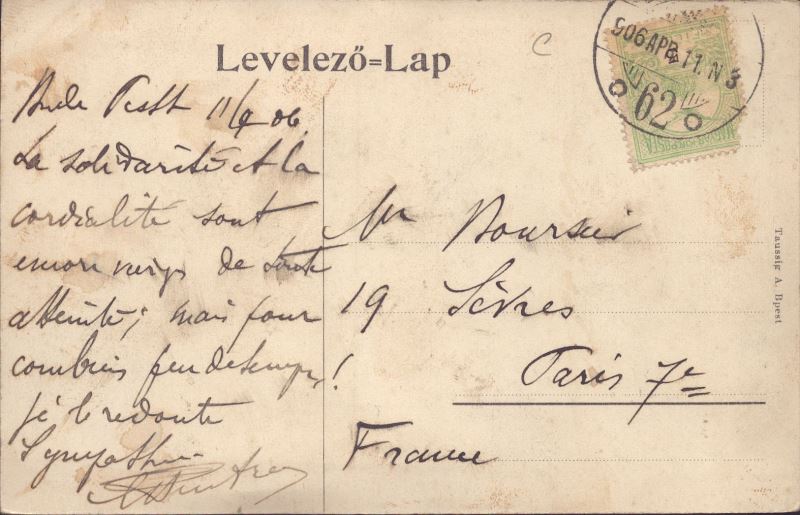 Levelező=Lap
C
906 APR 11. N 3
62
MAGYAR KIR. POSTA
Buda Pesth 11/4 06
La solidarité et la
cordialité sont
encore vierges de toute
atteinte; mais pour
combien peu de temps!
je le redoute
Mr Boursier
19 Sèvres
Paris 7e
France
Taussig A. Bpest